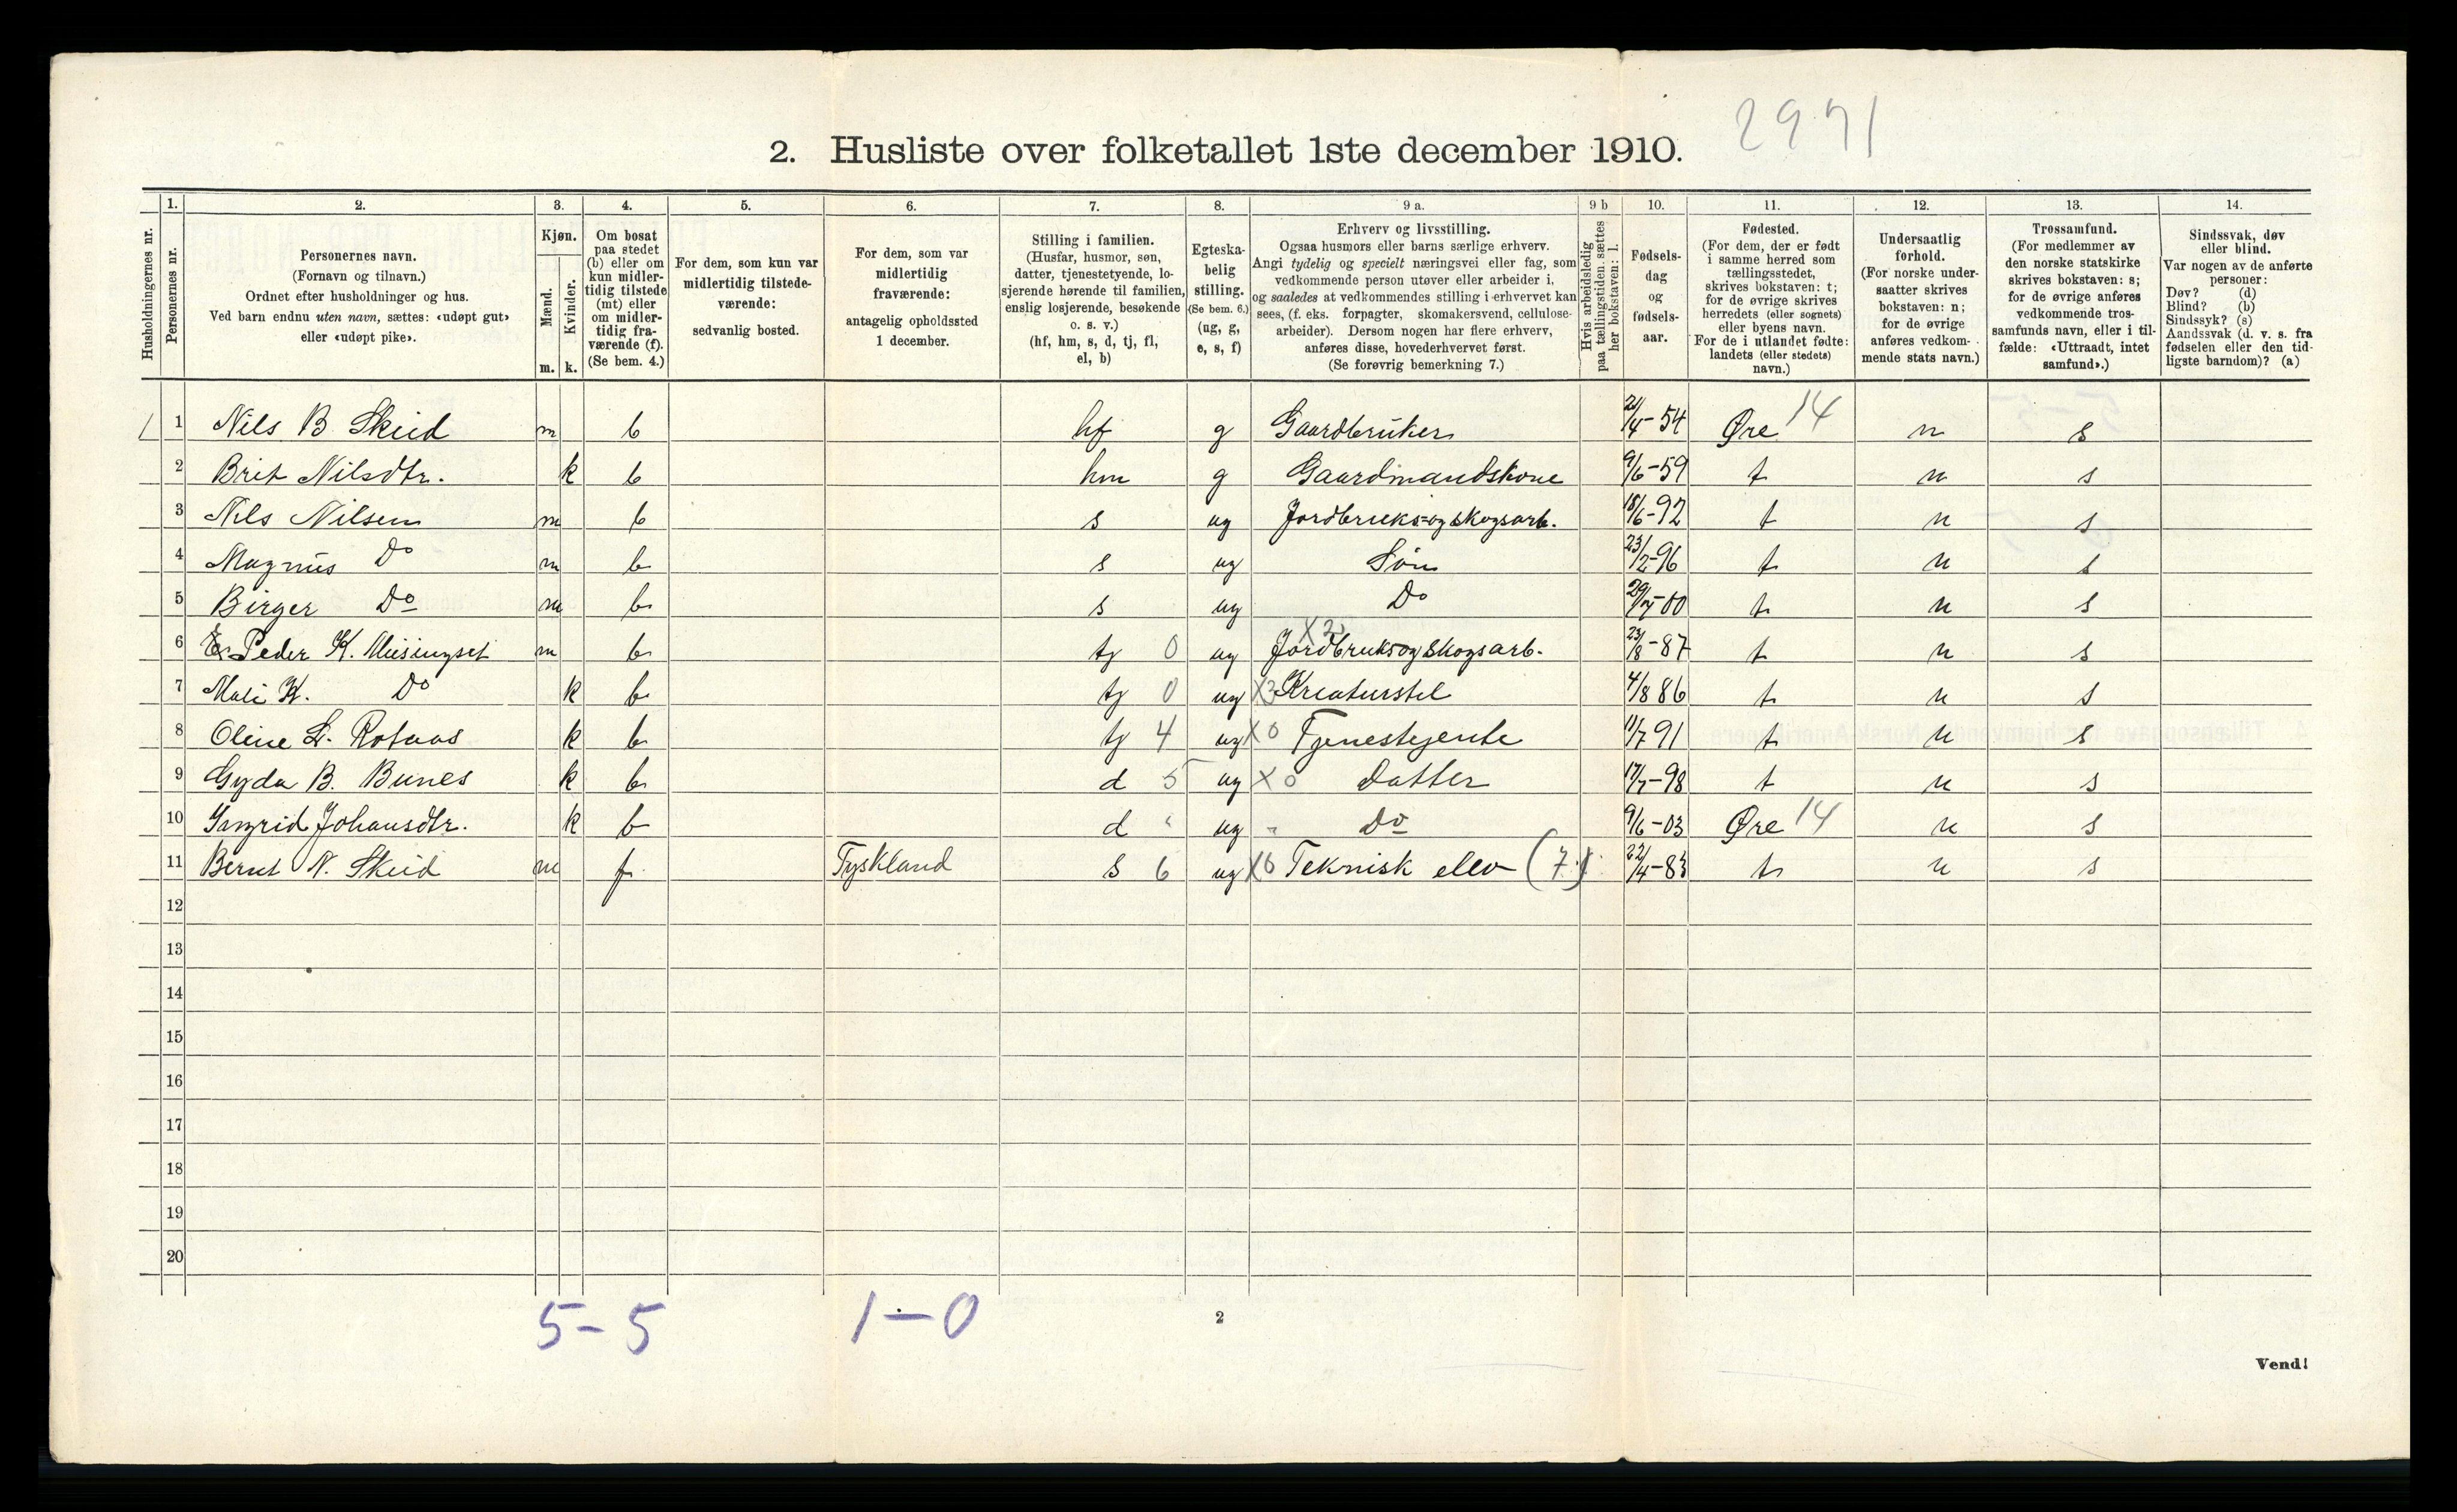 2971
2. Husliste over folketallet 1ste december 1910.
Husholdningernes nr.
1. Personernes nr.
2. Personernes navn. (Fornavn og tilnavn.) Ordnet efter husholdninger og hus. Ved barn endnu uten navn, sættes: «udøpt gut» eller «udøpt pike».
3. Kjøn. Mænd. Kvinder. m. k.
4. Om bosat paa stedet (b) eller om kun midlertidig tilstede (mt) eller om midlertidig fraværende (f). (Se bem. 4.)
5. For dem, som kun var midlertidig tilstedeværende: sedvanlig bosted.
6. For dem, som var midlertidig fraværende: antagelig opholdssted 1 december.
7. Stilling i familien. (Husfar, husmor, søn, datter, tjenestetyende, losjerende hørende til familien, enslig losjerende, besøkende o. s. v.) (hf, hm, s, d, tj, fl, el, b)
8. Egteskabelig stilling. (Se bem. 6.) (ug, g, e, s, f)
9 a. Erhverv og livsstilling. Ogsaa husmors eller barns særlige erhverv. Angi tydelig og specielt næringsvei eller fag, som vedkommende person utøver eller arbeider i, og saaledes at vedkommendes stilling i erhvervet kan sees, (f. eks. forpagter, skomakersvend, cellulosearbeider). Dersom nogen har flere erhverv, anføres disse, hovederhvervet først. (Se forøvrig bemerkning 7.)
9 b Hvis arbeidsledig paa tællingstiden, sættes her bokstaven: l.
10. Fødselsdag og fødselsaar.
11. Fødested. (For dem, der er født i samme herred som tællingsstedet, skrives bokstaven: t; for de øvrige skrives herredets (eller sognets) eller byens navn. For de i utlandet fødte: landets (eller stedets) navn.)
12. Undersaatlig forhold. (For norske undersaatter skrives bokstaven: n; for de øvrige anføres vedkommende stats navn.)
13. Trossamfund. (For medlemmer av den norske statskirke skrives bokstaven: s; for de øvrige anføres vedkommende trossamfunds navn, eller i tilfælde: «Uttraadt, intet samfund».)
14. Sindssvak, døv eller blind. Var nogen av de anførte personer: Døv? (d) Blind? (b) Sindssyk? (s) Aandssvak (d. v. s. fra fødselen eller den tidligste barndom)? (a)
1 1 Nils B Skeid m b hf g Gaardbruker 21/4-54 Øre 14 n s
2 Brit Nilsdtr. k b hm g Gaardmandskone 9/6-59 t n s
3 Nils Nilsen m b s ug Jordbruks=og skogsarb. 18/6-92 t n s
4 Magnus Do m b s ug Søn 23/12-96 t n s
5 Birger Do m b s ug Do 29/7-00 t n s
6 Peder K. Meisingset m b tj 0 ug x2 Jordbruksogskogsarb. 23/8-87 t n s
7 Mali K. Do k b tj 0 ug x3 Kreaturstel 4/8 86 t n s
8 Oline L. Rotaas k b tj 4 ug x0 Tjenestejente 11/7 91 t n s
9 Gyda B. Bunes k b d 5 ug x0 Datter 17/7-98 t n s
10 Ingrid Johansdtr. k b d " ug " Do 9/6-03 Øre 14 n s
11 Bernt N. Skeid m f Tyskland s 6 ug x6 Teknisk elev (7.) 22/4-83 t n s
12
13
14
15
16
17
18
19
20
5-5 1-0
2
Vend!